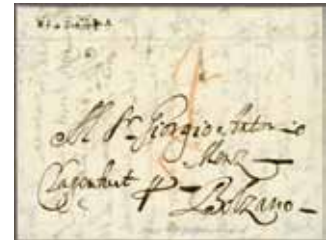 Al Sr Giorgio Antonio
Menz
Clagenfurt Bolzano